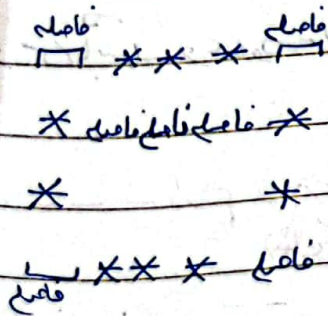 فاصله * * * فاصله
* فاصله فاصله فاصله *
* *
فاصله * * * فاصله